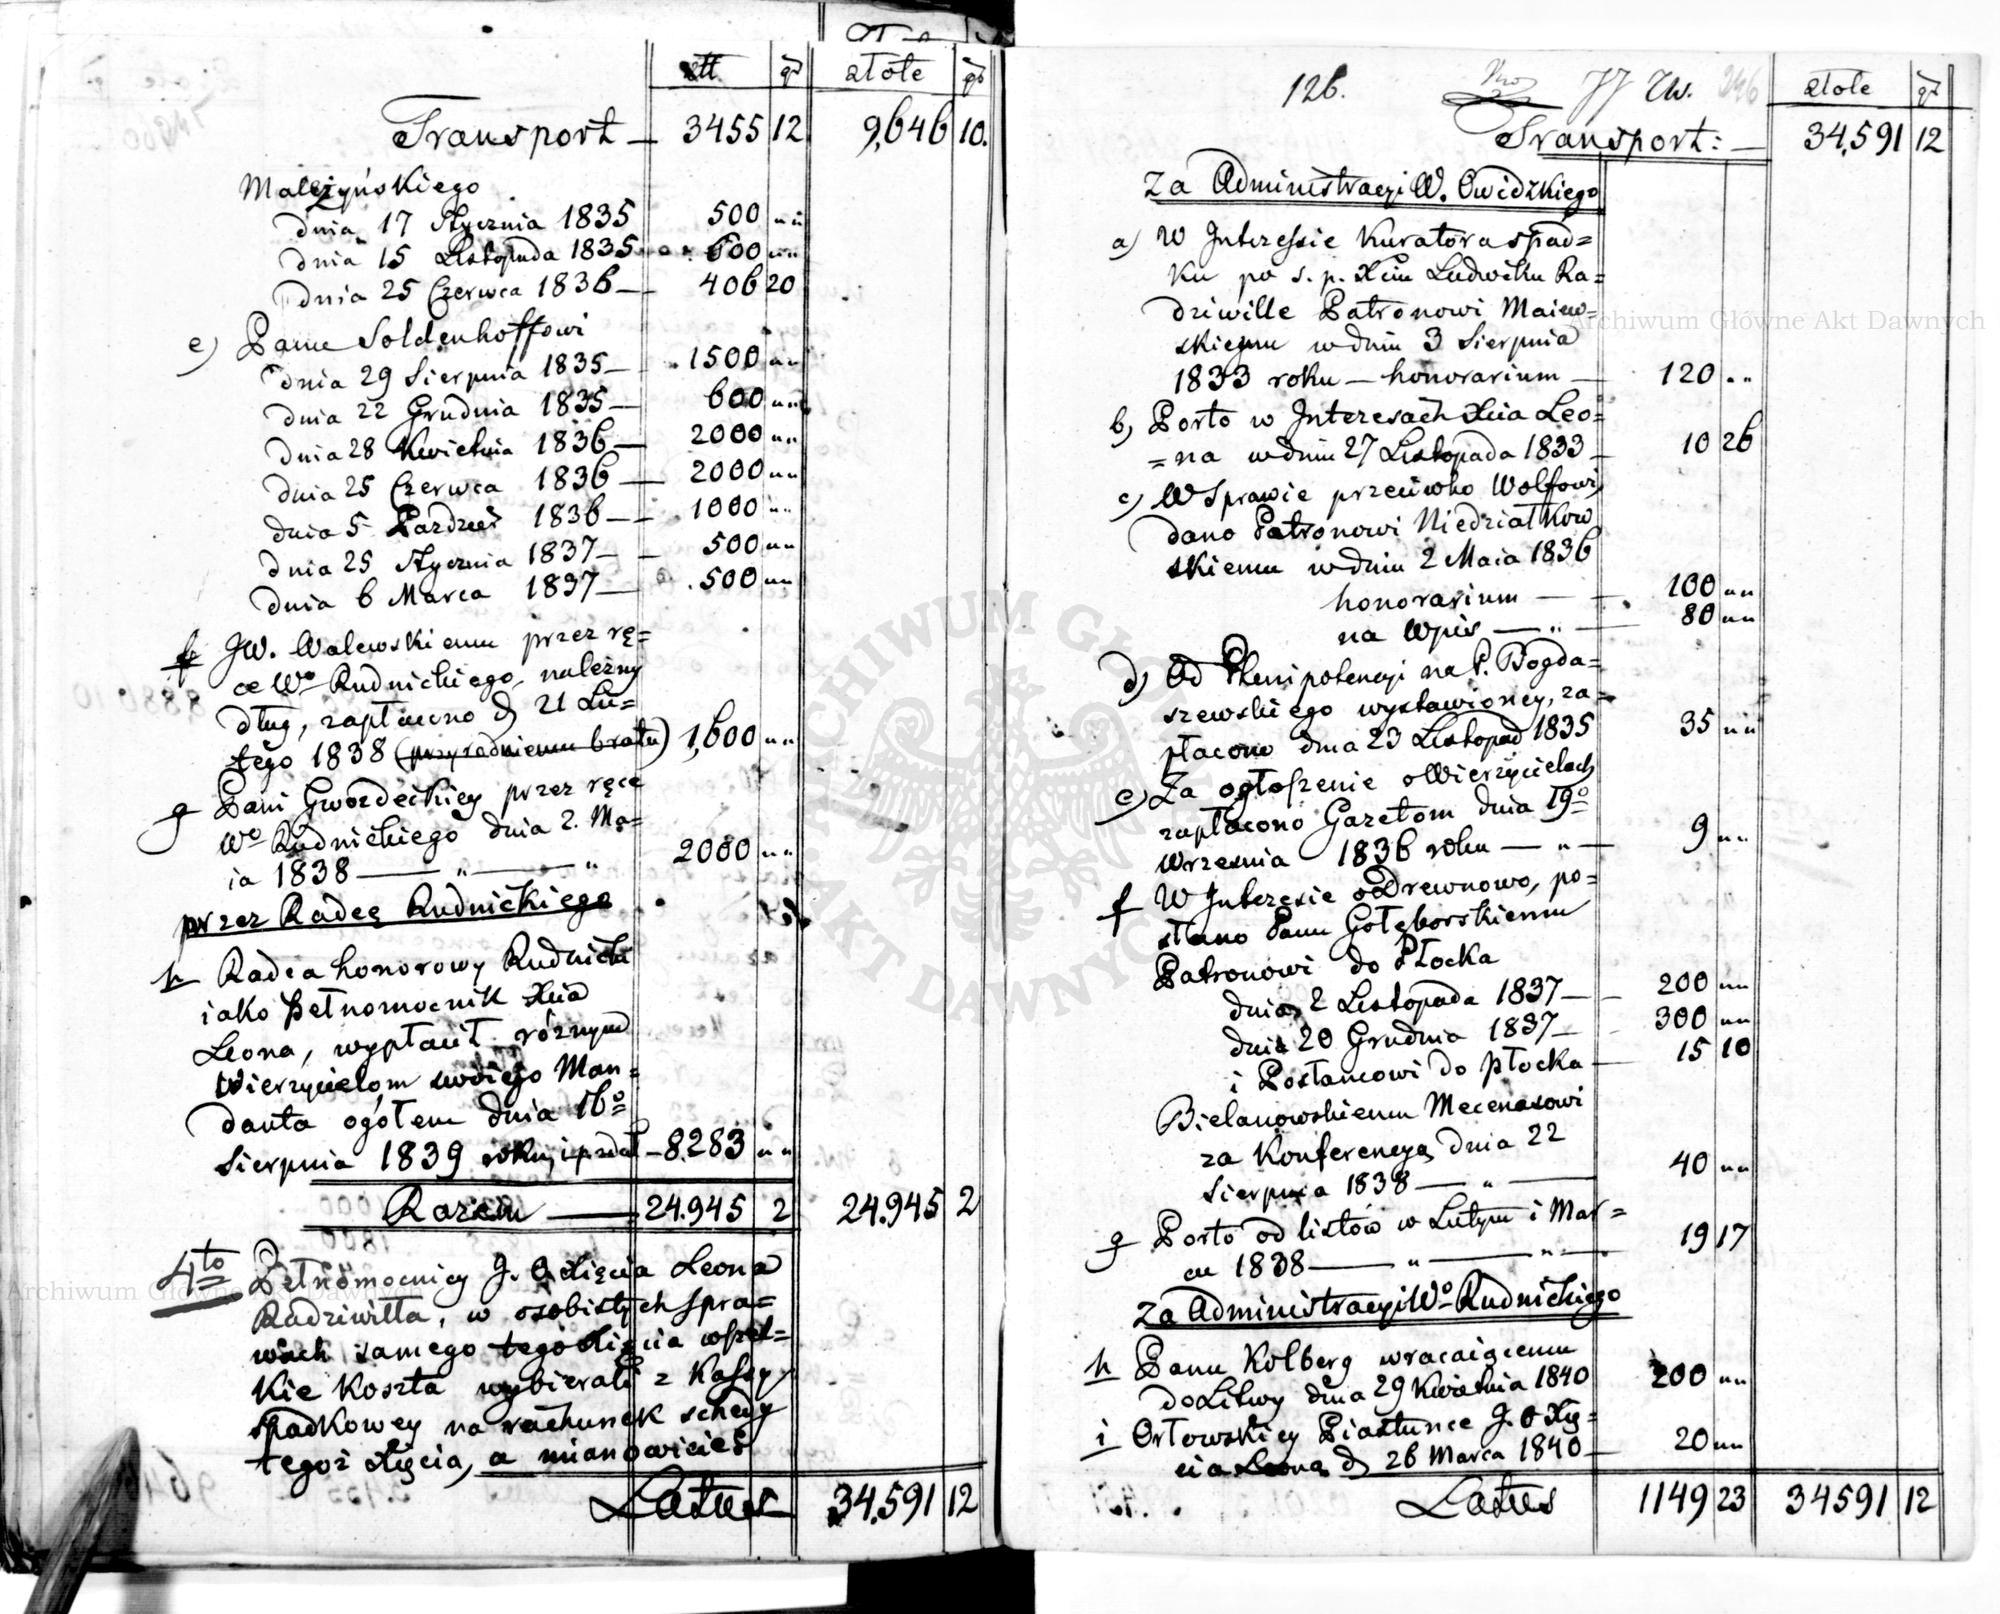 złt gr złote gr
Transport — 3455 12 9,646 10.
Mależyńskiego
dnia 17 Stycznia 1835 500 " "
dnia 15 Listopada 1835 600 " "
dnia 25 Czerwca 1836 — 406 20
e) Panu Soldenhoffowi
dnia 29 Sierpnia 1835 — 1500 " "
dnia 22 Grudnia 1835 — 600 " "
dnia 28 Kwietnia 1836 — 2000 " "
dnia 25 Czerwca 1836 — 2000 " "
dnia 5 Paździer 1836 — 1000 " "
dnia 25 Stycznia 1837 — 500 " "
dnia 6 Marca 1837 — 500 " "
f JW. Walewskiemu przez rę=
ce Wo Rudnickiego, należny
dług, zapłacono d 21 Lu=
tego 1838 (przyrodniemu bratu) 1,600 " "
g Pani Gwozdeckiey przez ręce
Wo Rudnickiego dnia 2. Ma=
ia 1838 — " — " 2000 " "
przez Radcę Rudnickiego
h Radca honorowy Rudnicki
iako Pełnomocnik Xcia
Leona, wypłacił różnym
Wierzycielom swoiego Man=
danta ogółem dnia 16o
Sierpnia 1839 roku, — 8283 " "
Razem — 24.945 2 24.945 2
4to Pełnomocnicy J. O. Xięcia Leona
Radziwiłła, w osobistych spra=
wach samego tego Xięcia wszel=
kie koszta wybierali z Kassy
spadkowey na rachunek schedy
tegoż Xięcia, a mianowicie:
Latus 34.591 12
126. JJ Tw. 246 złote gr
Transport: — 34,591 12
Za Administracyi W. Owidzkiego
a) W Interessie Kuratora spad=
ku po s. p. Xciu Ludwiku Ra=
dziwille Patronowi Maiew=
skiemu w dniu 3 Sierpnia
1833 roku — honorarium — 120 " "
b) Porto w Interesach Xcia Leo=
=na w dniu 27 Listopada 1833 — 10 26
c) W Sprawie przeciwko Wolfowi
dano Patronowi Niedziałkow
skiemu w dniu 2 Maia 1836
honorarium — 100 " "
na Wpis — " — 80 " "
d) Od Plenipotencyi na P. Bogda=
szewskiego wystawioney, za=
płacono dnia 23 Listopad 1835 35 " "
e) Za ogłoszenie o Wierzycielach
zapłacono Gazetom dnia 19o
Września 1836 roku — " — 9 " "
f W Interesie o Drewnowo, po=
słano Panu Gołęborskiemu
Patronowi do Płocka
dnia 2 Listopada 1837 — 200 " "
dnia 20 Grudnia 1837 — 300 " "
i Posłańcowi do Płocka — 15 10
Bielanowskiemu Mecenasowi
za Konferencyą dnia 22
Sierpnia 1838 — " — 40 " "
g Porto od listów w Lutym i Mar=
cu 1838 — " — " — 19 17
Za Administracyi Wo Rudnickiego
h Panu Kolberg wracaiącemu
do Litwy dnia 29 Kwietnia 1840 200 " "
i Orłowskiey Piastunce J. O Xię=
cia Leona d 26 Marca 1840 — 20 " "
Latus 1149 23 34591 12
Archiwum Główne Akt Dawnych
Archiwum Główne Akt Dawnych
ARCHIWUM GŁÓWNE AKT DAWNYCH